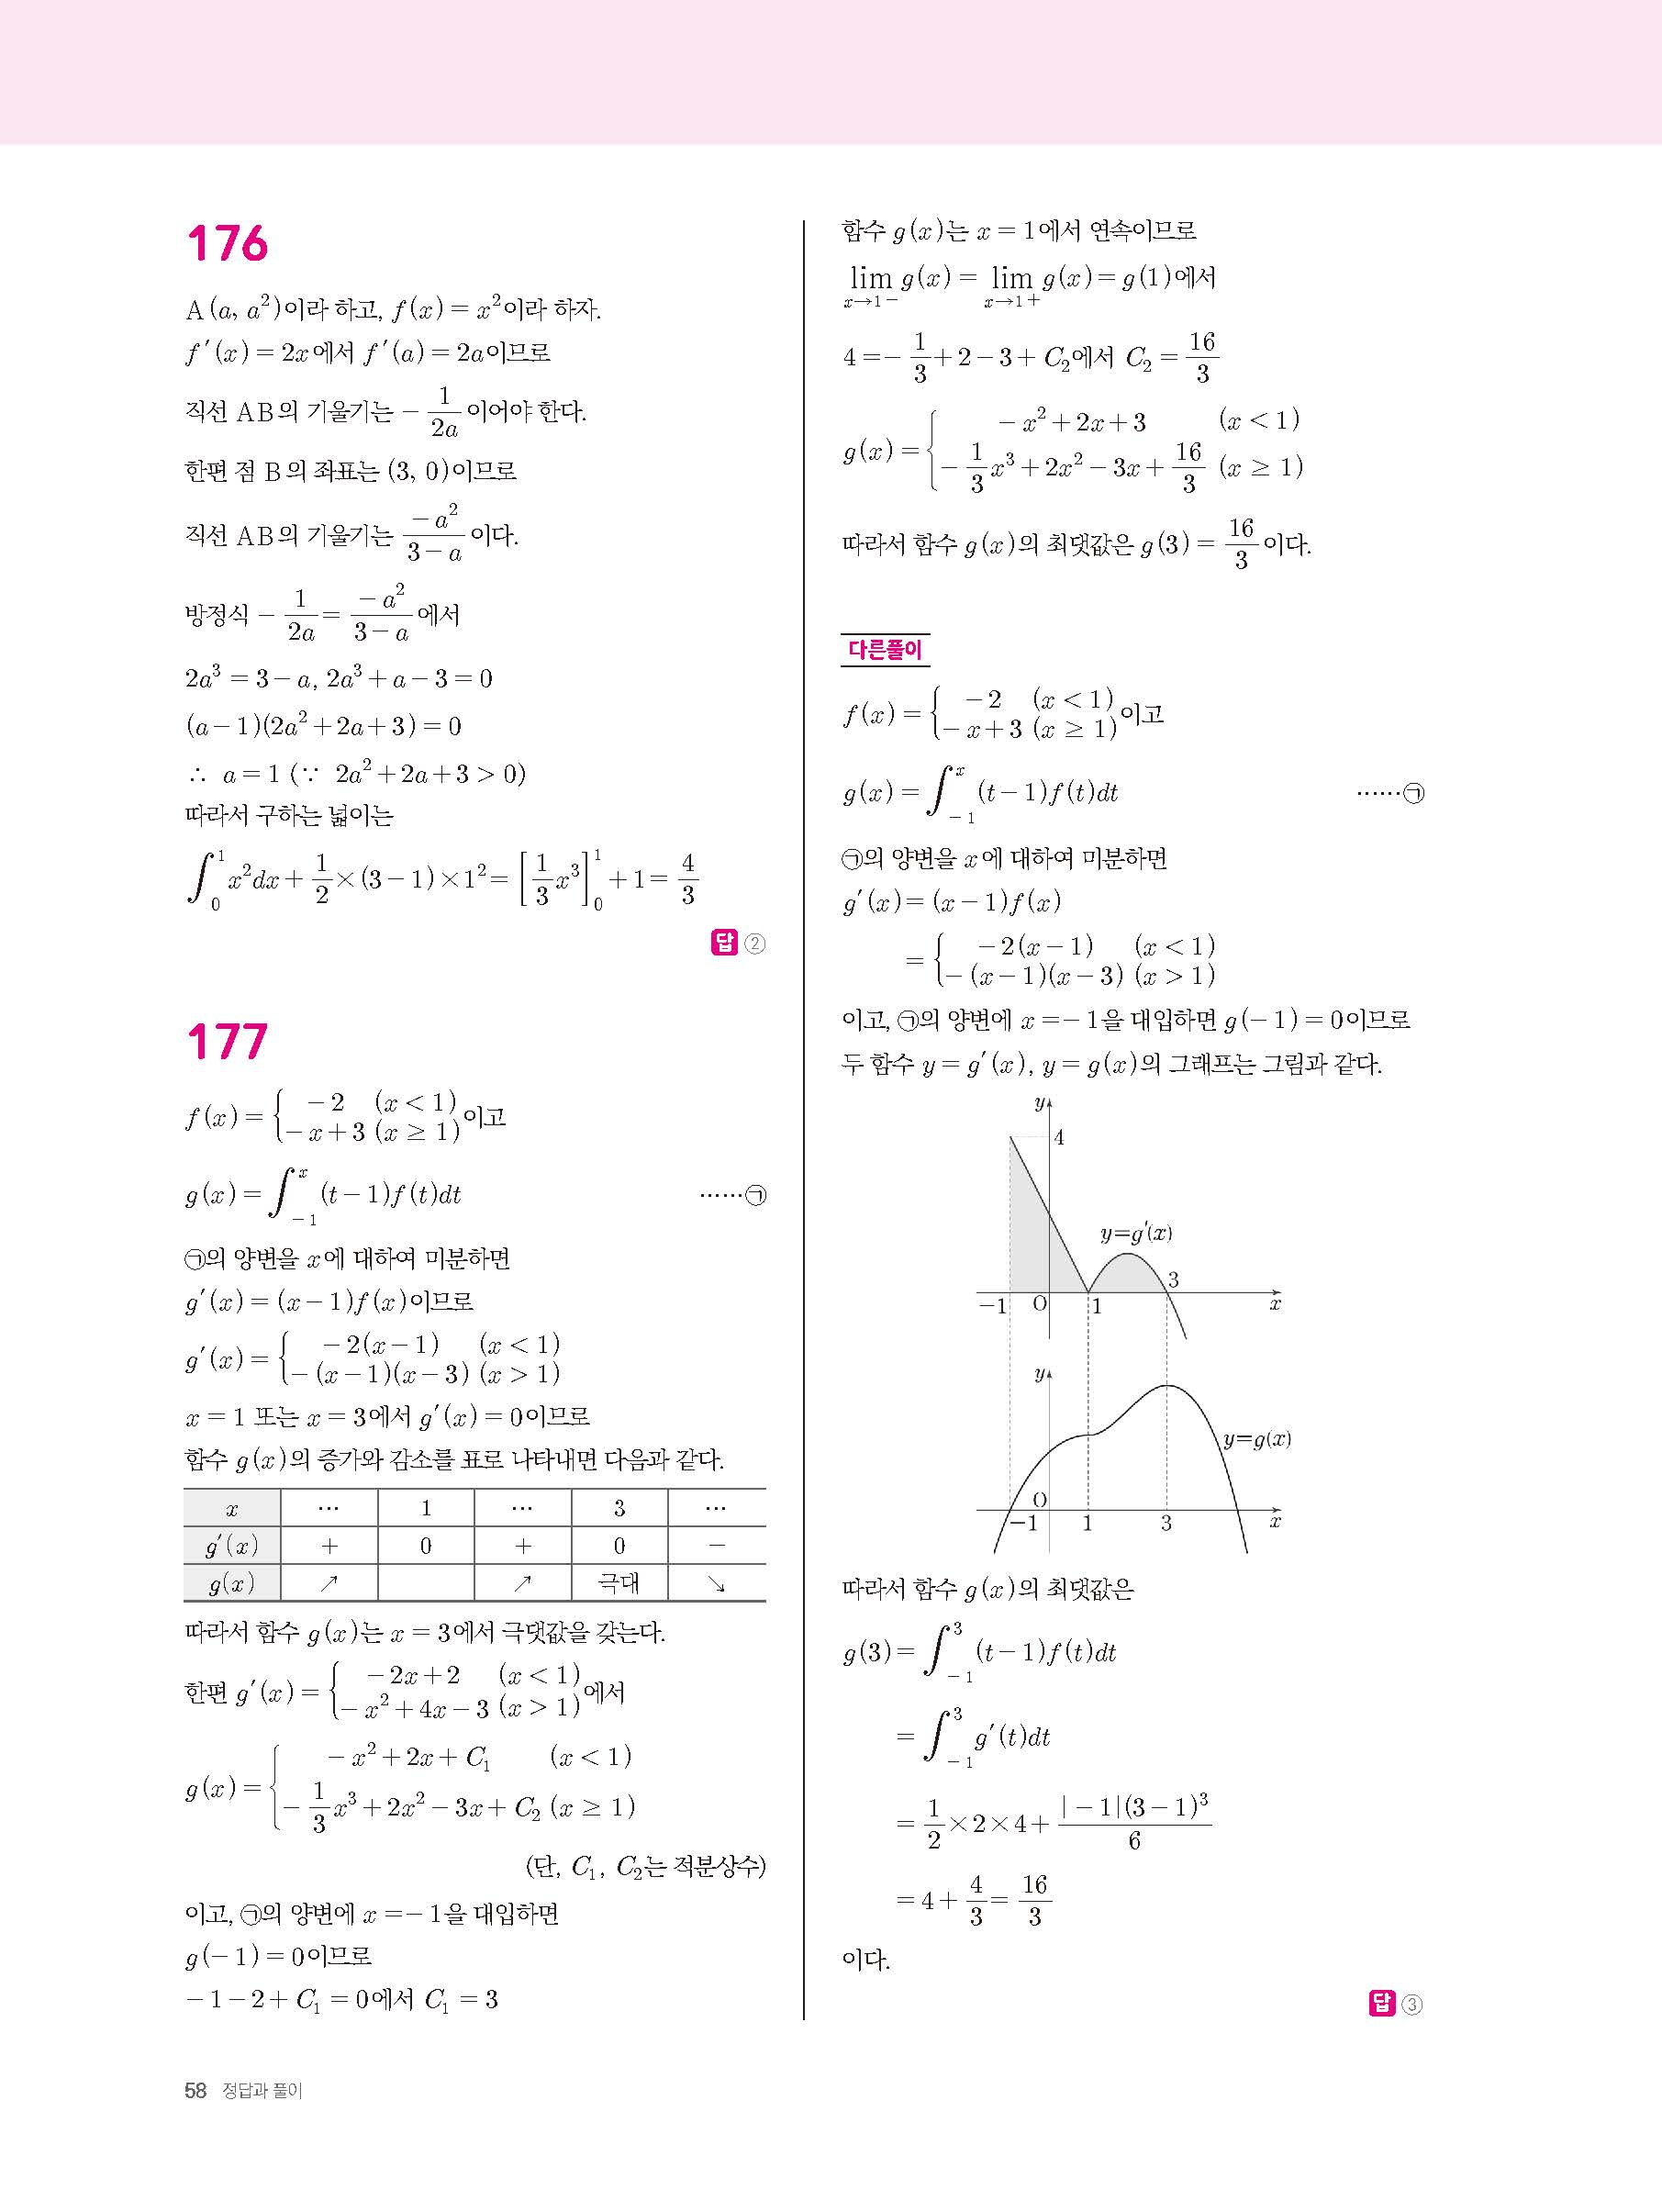 176
A(a, a²)이라 하고, f(x)=x²이라 하자.
f′(x)=2x에서 f′(a)=2a이므로
직선 AB의 기울기는 -1/2a 이어야 한다.
한편 점 B의 좌표는 (3, 0)이므로
직선 AB의 기울기는 -a²/(3-a) 이다.
방정식 -1/2a = -a²/(3-a) 에서
2a³=3-a, 2a³+a-3=0
(a-1)(2a²+2a+3)=0
∴ a=1 (∵ 2a²+2a+3>0)
따라서 구하는 넓이는
∫₀¹ x²dx + 1/2×(3-1)×1² = [1/3 x³]₀¹ +1 = 4/3
답 ②
177
f(x)={ -2 (x<1), -x+3 (x≥1) 이고
g(x)=∫₋₁ˣ (t-1)f(t)dt ……㉠
㉠의 양변을 x에 대하여 미분하면
g′(x)=(x-1)f(x)이므로
g′(x)={ -2(x-1) (x<1), -(x-1)(x-3) (x>1)
x=1 또는 x=3에서 g′(x)=0이므로
함수 g(x)의 증가와 감소를 표로 나타내면 다음과 같다.
x … 1 … 3 …
g′(x) + 0 + 0 -
g(x) ↗ ↗ 극대 ↘
따라서 함수 g(x)는 x=3에서 극댓값을 갖는다.
한편 g′(x)={ -2x+2 (x<1), -x²+4x-3 (x>1) 에서
g(x)={ -x²+2x+C₁ (x<1), -1/3 x³+2x²-3x+C₂ (x≥1)
(단, C₁, C₂는 적분상수)
이고, ㉠의 양변에 x=-1을 대입하면
g(-1)=0이므로
-1-2+C₁=0에서 C₁=3
함수 g(x)는 x=1에서 연속이므로
lim x→1- g(x)= lim x→1+ g(x)=g(1)에서
4=-1/3+2-3+C₂에서 C₂=16/3
g(x)={ -x²+2x+3 (x<1), -1/3 x³+2x²-3x+16/3 (x≥1)
따라서 함수 g(x)의 최댓값은 g(3)=16/3 이다.
다른풀이
f(x)={ -2 (x<1), -x+3 (x≥1) 이고
g(x)=∫₋₁ˣ (t-1)f(t)dt ……㉠
㉠의 양변을 x에 대하여 미분하면
g′(x)=(x-1)f(x)
={ -2(x-1) (x<1), -(x-1)(x-3) (x>1)
이고, ㉠의 양변에 x=-1을 대입하면 g(-1)=0이므로
두 함수 y=g′(x), y=g(x)의 그래프는 그림과 같다.
y
4
y=g′(x)
3
-1 O 1 x
y
y=g(x)
O
-1 1 3 x
따라서 함수 g(x)의 최댓값은
g(3)=∫₋₁³ (t-1)f(t)dt
=∫₋₁³ g′(t)dt
=1/2×2×4+ |-1|(3-1)³/6
=4+4/3=16/3
이다.
답 ③
58 정답과 풀이